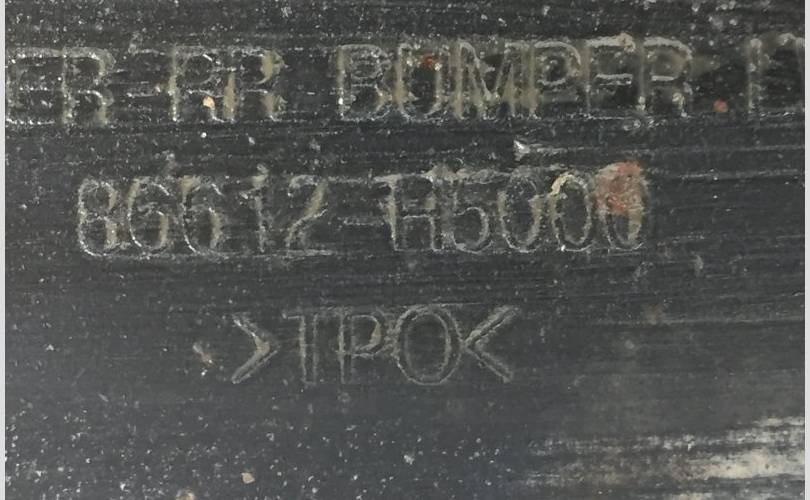 ER-RR BUMPER L
86612-H5000
>TPO<